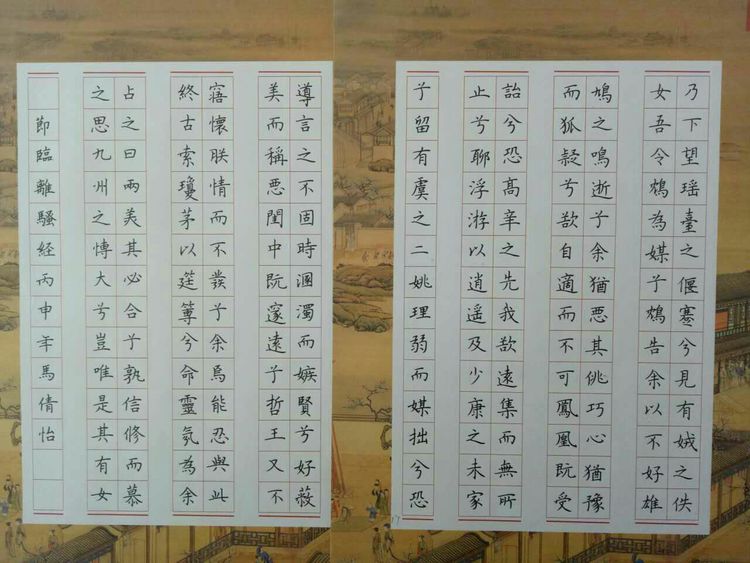 乃下望瑶臺之偃蹇兮見有娀之佚
女吾令鴆為媒兮鴆告余以不好雄
鳩之鳴逝兮余猶悪其佻巧心猶豫
而狐疑兮欲自適而不可鳳凰既受
詒兮恐高辛之先我欲遠集而無所
止兮聊浮游以逍遥及少康之未家
兮留有虞之二姚理弱而媒拙兮恐
導言之不固時溷濁而嫉賢兮好蔽
美而稱悪閨中既邃遠兮哲王又不
寤懷朕情而不發兮余焉能忍與此
終古索瓊茅以筳篿兮命靈氛為余
占之曰兩美其必合兮孰信修而慕
之思九州之博大兮豈唯是其有女
節臨離騷経丙申年馬倩怡